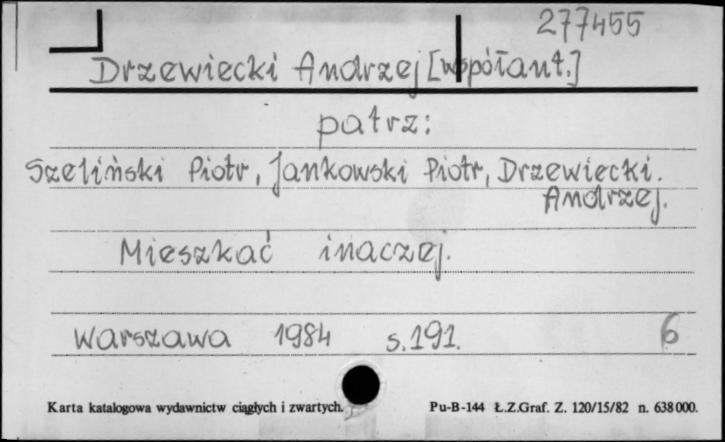 277455
Drzewiecki Andrzej [współaut.]
patrz:
Szeliński Piotr, Jankowski Piotr, Drzewiecki.
Andrzej.
Mieszkać inaczej.
Warszawa 1984 s.191. 6
Karta katalogowa wydawnictw ciągłych i zwartych. Pu-B-144 Ł.Z.Graf. Z. 120/15/82 n. 638000.